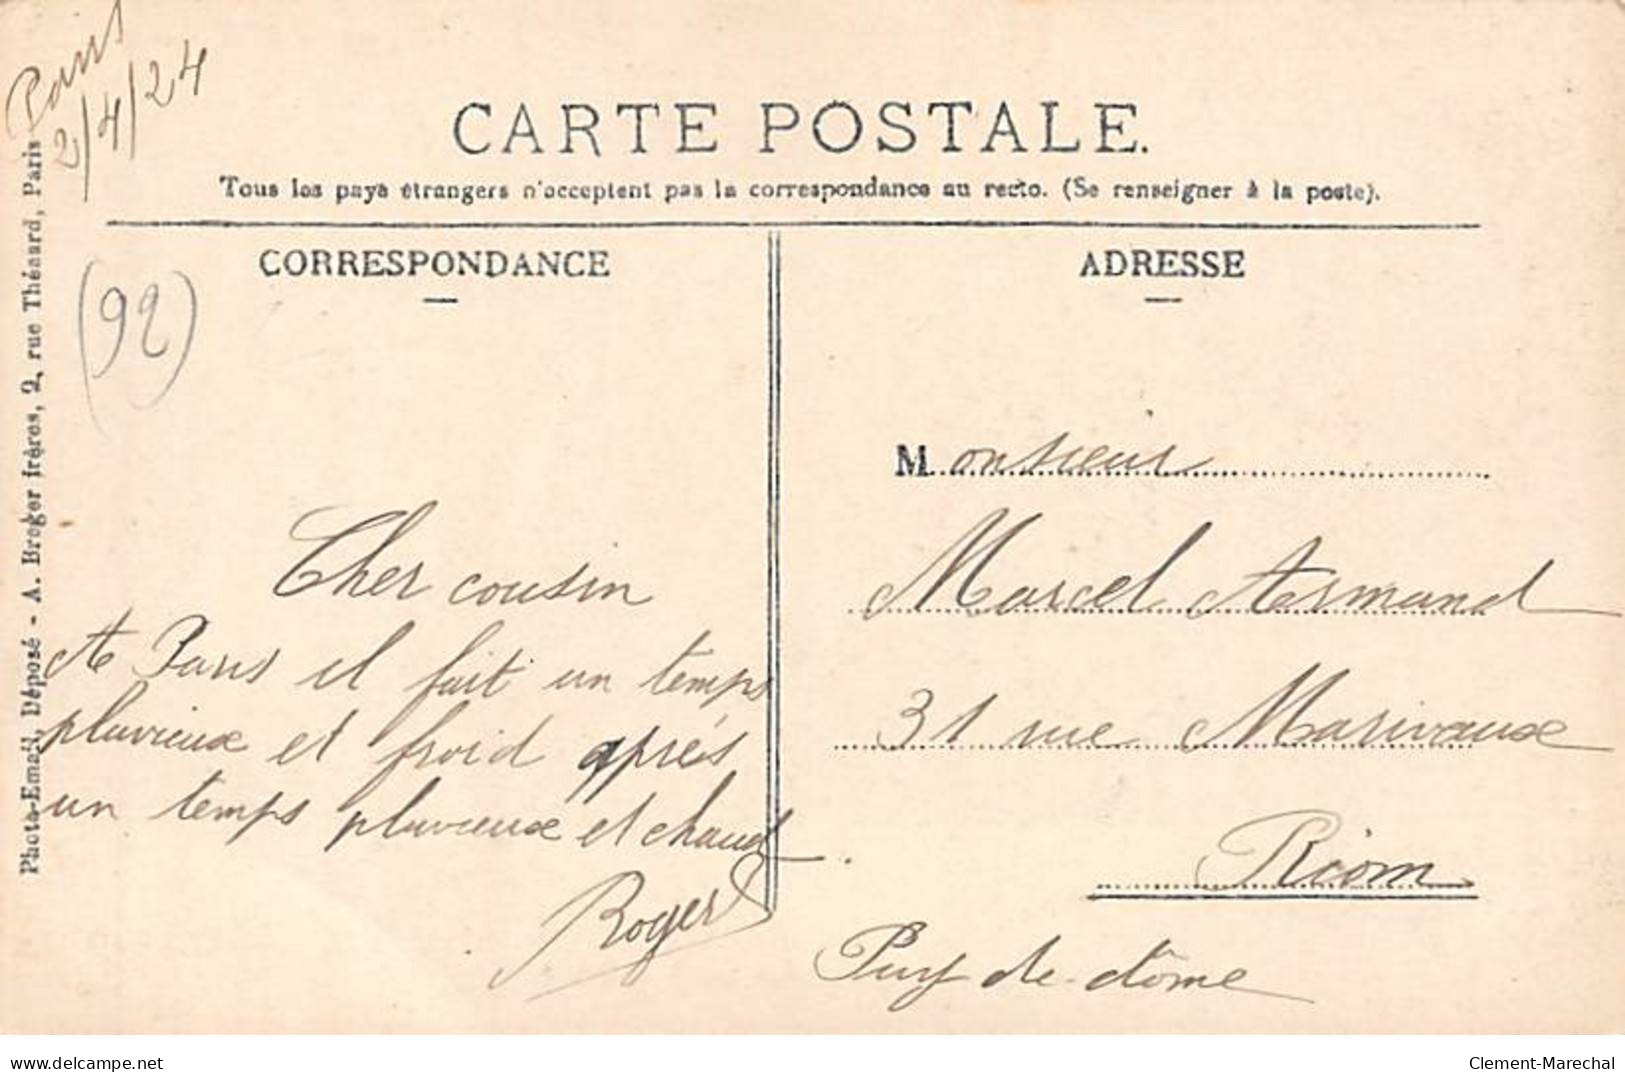 Paris
2/4/24
CARTE POSTALE.
Tous les pays étrangers n'acceptent pas la correspondance au recto. (Se renseigner à la poste).
CORRESPONDANCE
ADRESSE
(92)
Cher cousin
A Paris il fait un temps
pluvieux et froid après
un temps pluvieux et chaud.
Roger
Monsieur
Marcel Armand
31 rue Marivaux
Riom
Puy-de-dôme
Photo-Email, Déposé - A. Breger frères, 9, rue Thénard, Paris
delcampe.net
Clement-Marechal